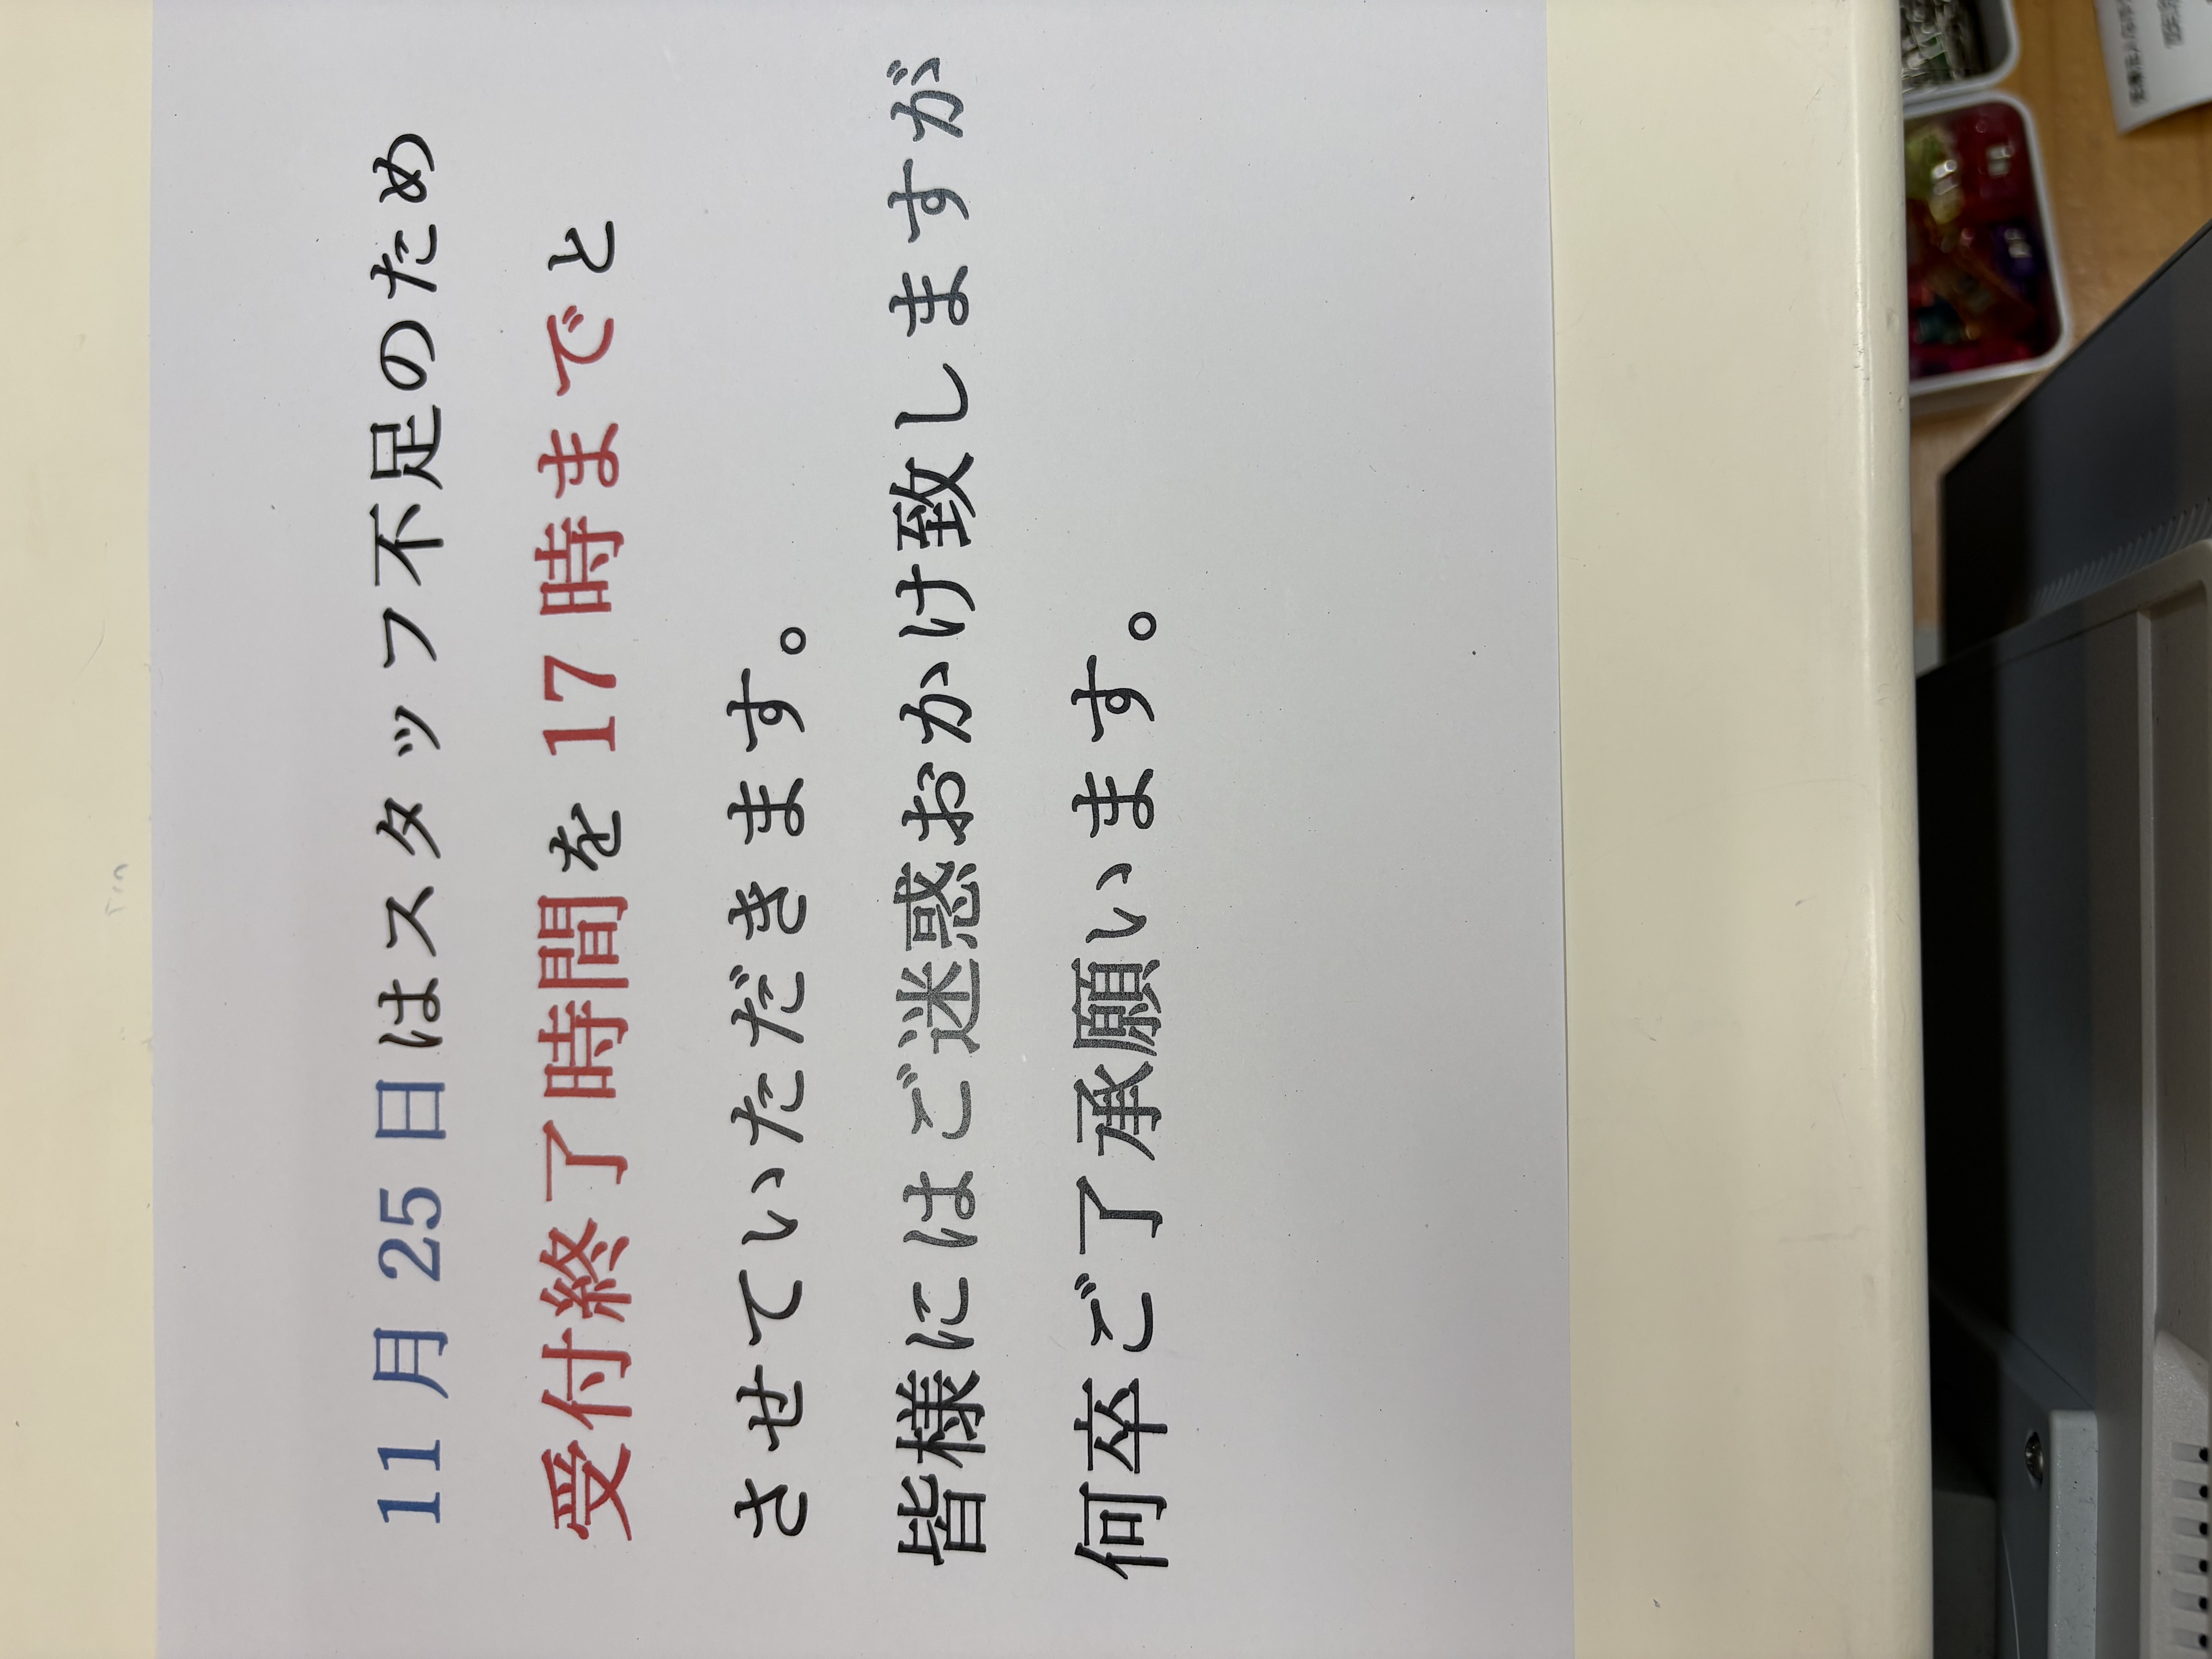 11月25日はスタッフ不足のため
受付終了時間を17時までと
させていただきます。
皆様にはご迷惑おかけ致しますが
何卒ご了承願います。